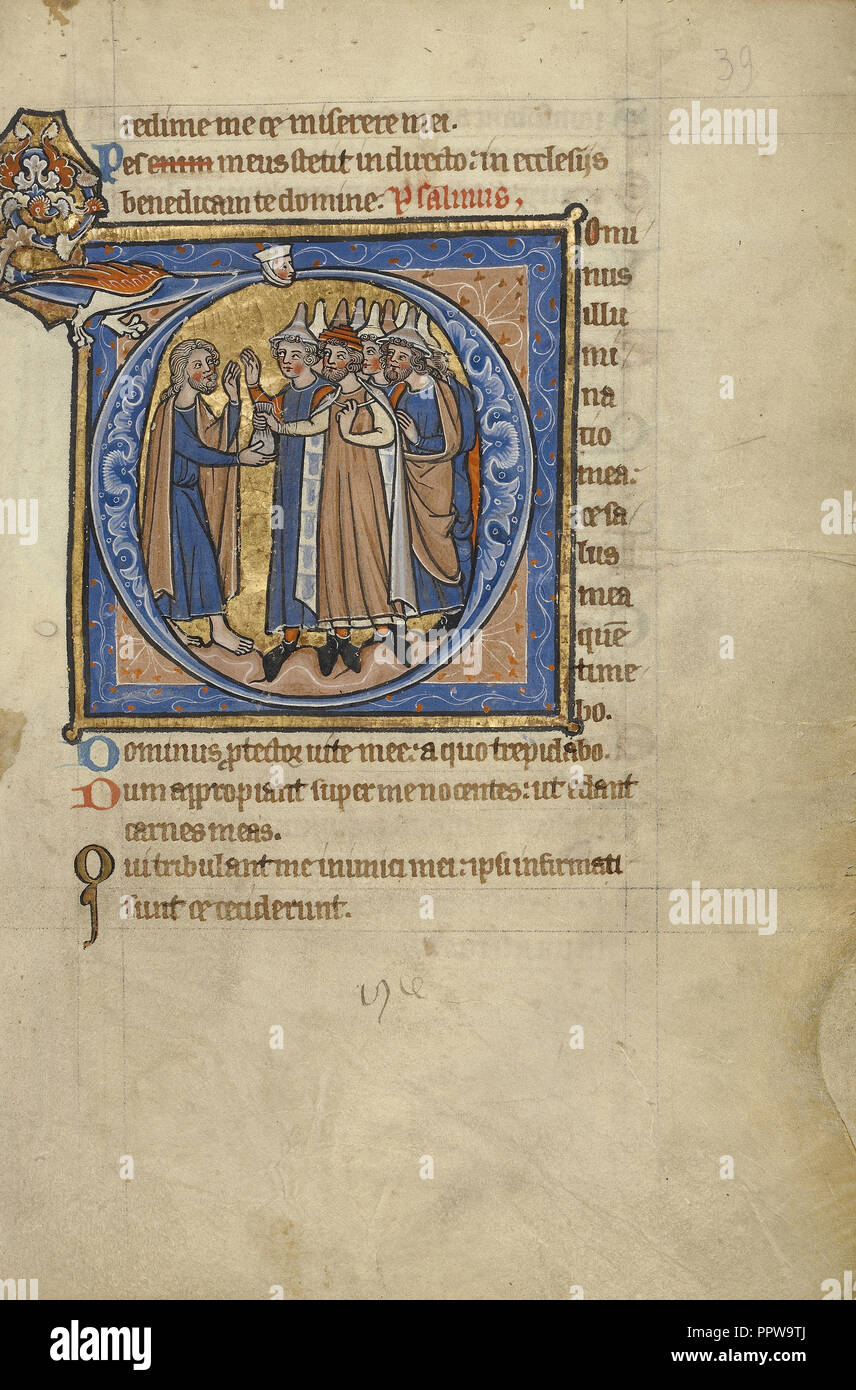 39
redime me et miserere mei.
Pes enim meus stetit in directo: in ecclesijs
benedicam te domine. Psalmus,
Domi
nus
illu
mi
na
tio
mea:
et sa
lus
mea
quē
time
bo.
Dominus ꝓtector uite mee: a quo trepidabo.
Dum appropiant super me nocentes: ut edant
carnes meas.
Qui tribulant me inimici mei: ipsi infirmati
sunt et ceciderunt.
alamy
Image ID: PPW9TJ
www.alamy.com